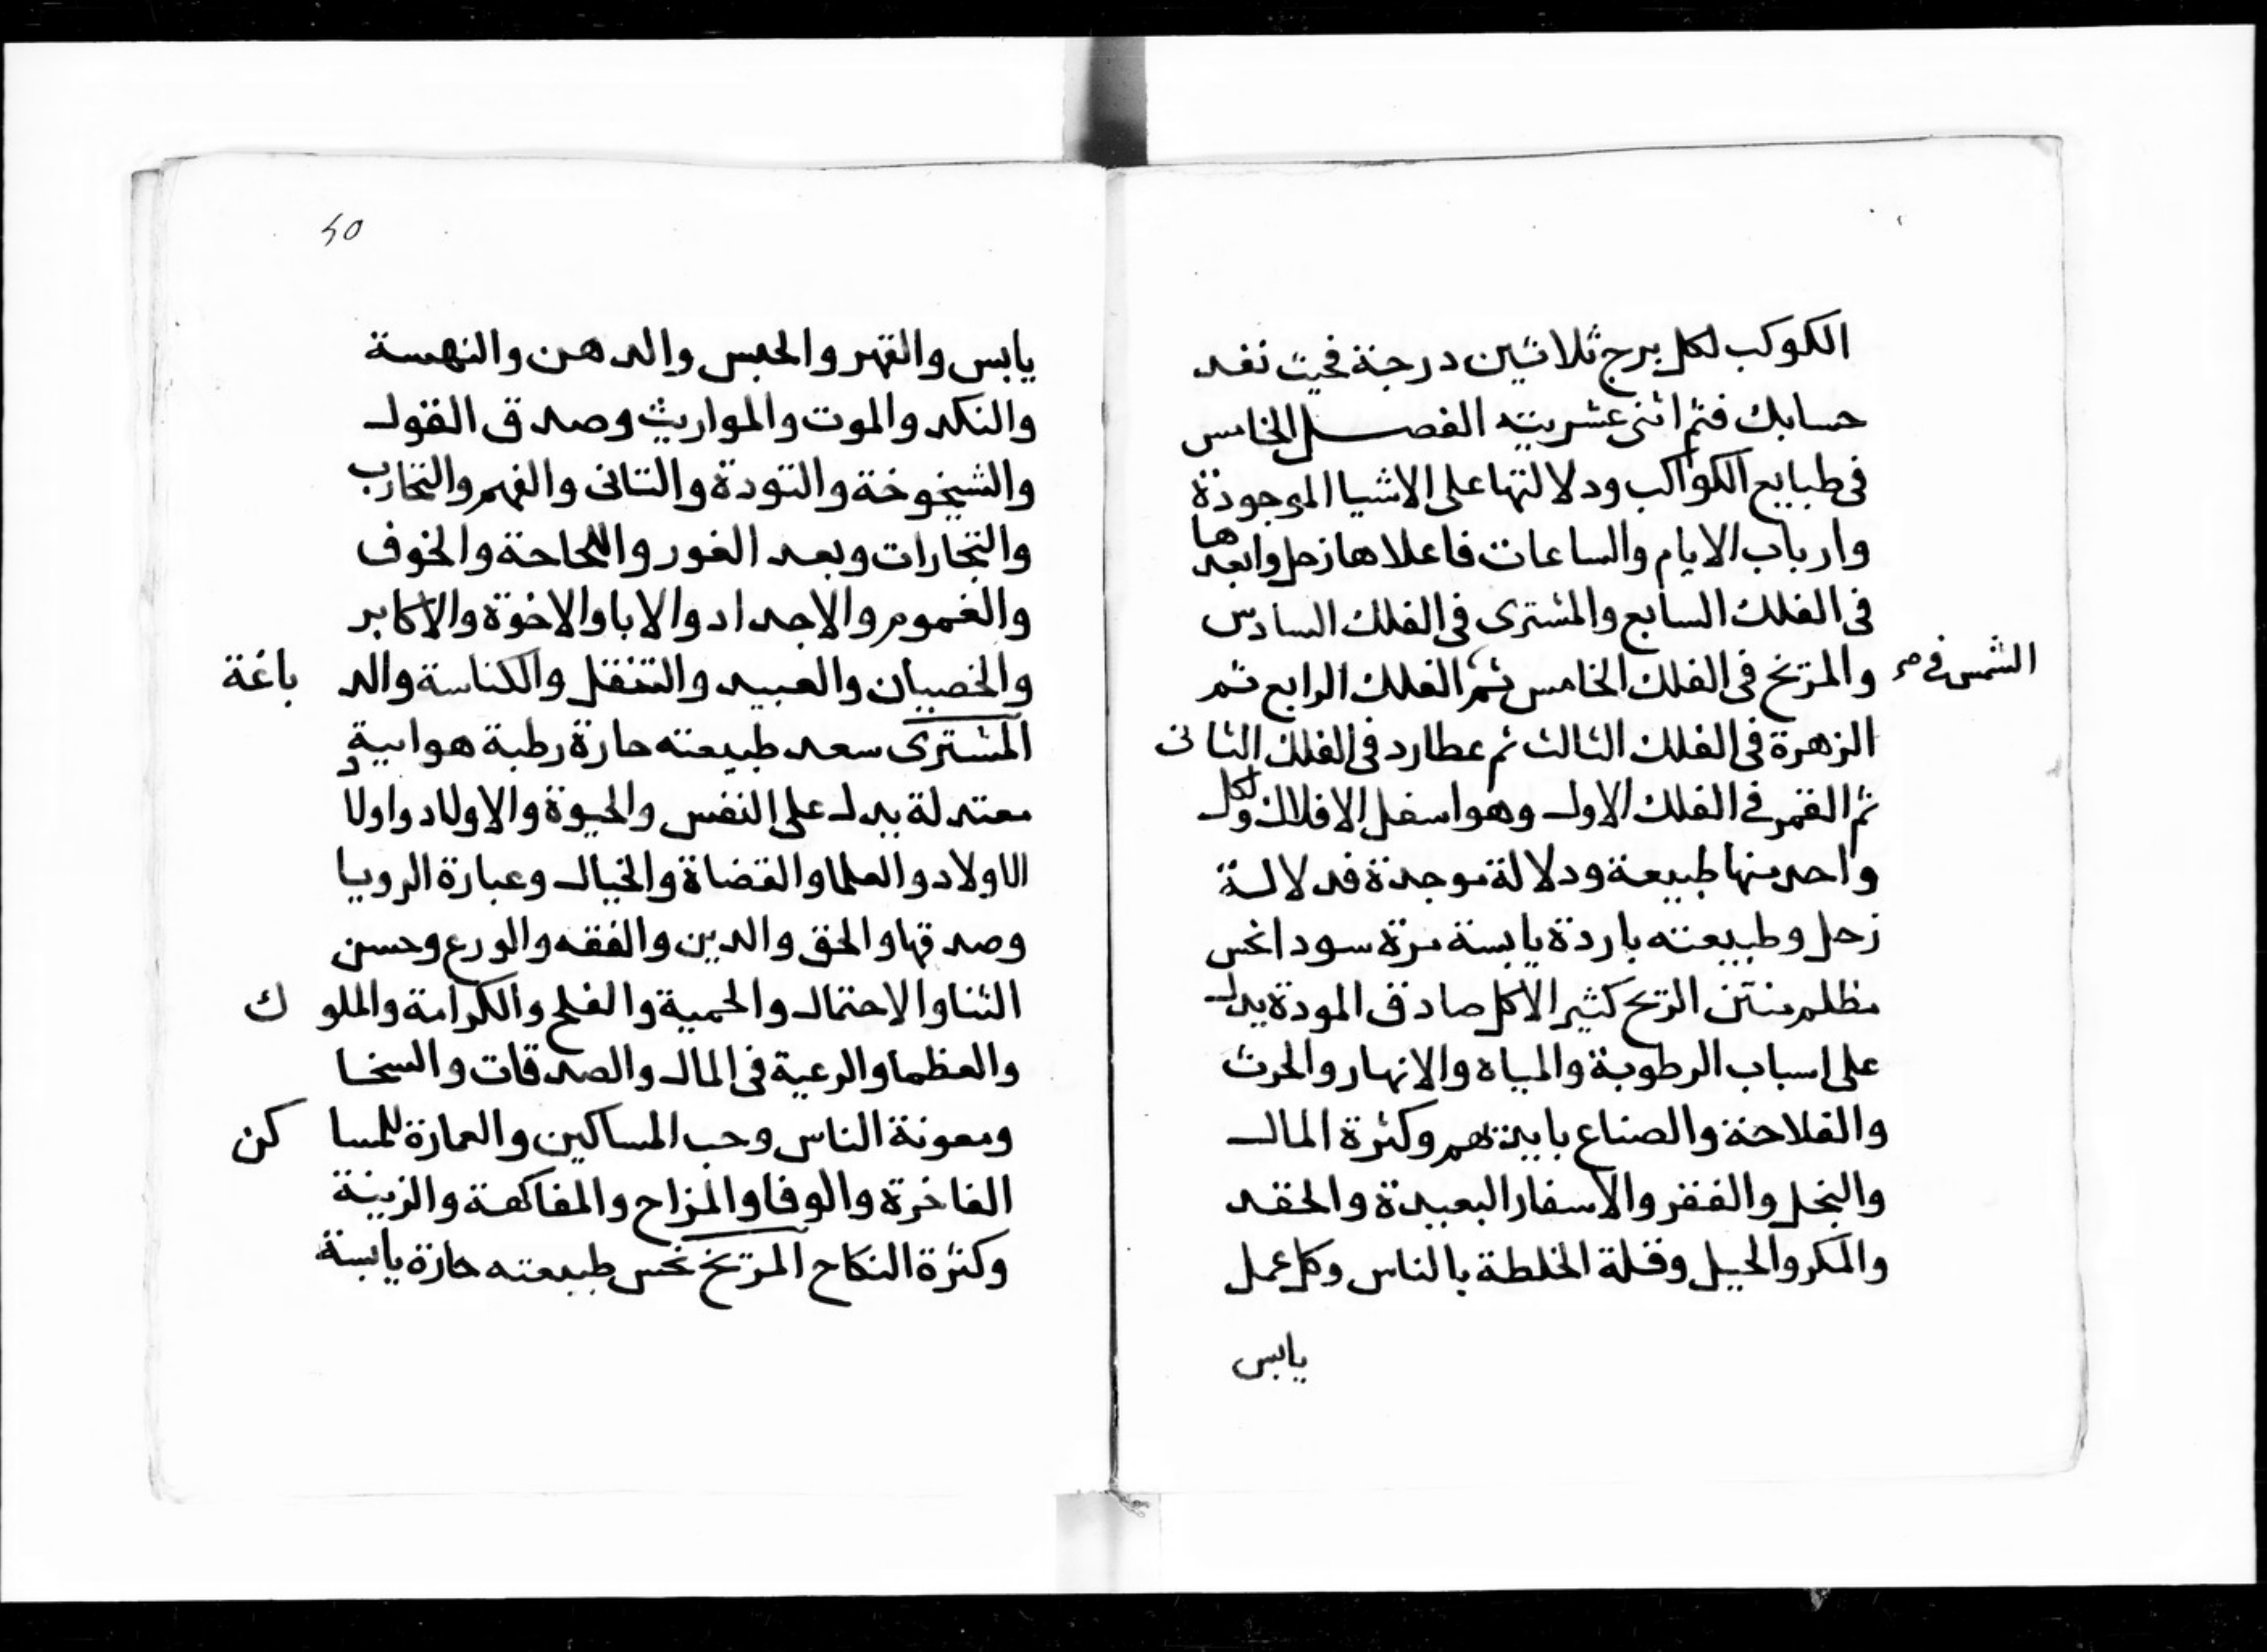 الكوكب لكل برج ثلاثين درجة فحيث نفد
حسابك فثم اثنى عشريته الفصل الخامس
فى طبايع الكواكب ودلالتها على الاشيا الموجودة
وارباب الايام والساعات فاعلاها زحل وابعدها
فى الفلك السابع والمشترى فى الفلك السادس
والمريخ فى الفلك الخامس ثم الفلك الرابع ثم
الشمس فى
الزهرة فى الفلك الثالث ثم عطارد فى الفلك الثانى
ثم القمر فى الفلك الاول وهو اسفل الافلاك ولكل
واحد منها طبيعة ودلالة موجدة فدلالة
زحل وطبيعته باردة يابسة مرة سودا نحس
مظلم منتن الريح كثير الاكل صادق المودة يدل
على اسباب الرطوبة والمياه والانهار والحرث
والفلاحة والصناع بايديهم وكثرة المال
والبخل والفقر والاسفار البعيدة والحقد
والمكر والحيل وقلة الخلطة بالناس وكل عمل
يابس
50
يابس والقهر والحبس والدهن والنهسة
والنكد والموت والمواريث وصدق القول
والشيخوخة والتودة والتانى والفهم والتجارب
والتجارات وبعد الغور واللجاجة والخوف
والغموم والاجداد والابا والاخوة والاكابر
والخصيان والعبيد والتنقل والكناسة والدباغة
المشترى سعد طبيعته حارة رطبة هوايية
معتدلة يدل على النفس والحيوة والاولاد واولا
الاولاد والعلما والقضاة والخيال وعبارة الرويا
وصدقها والحق والدين والفقه والورع وحسن
الثنا والاحتمال والحمية والفلج والكرامة والملوك
والعظما والرعية فى المال والصدقات والسخا
ومعونة الناس وحب المساكين والعمارة للمساكن
الفاخرة والوفا والمزاح والمفاكهة والزينة
وكثرة النكاح المريخ نحس طبيعته حارة يابسة